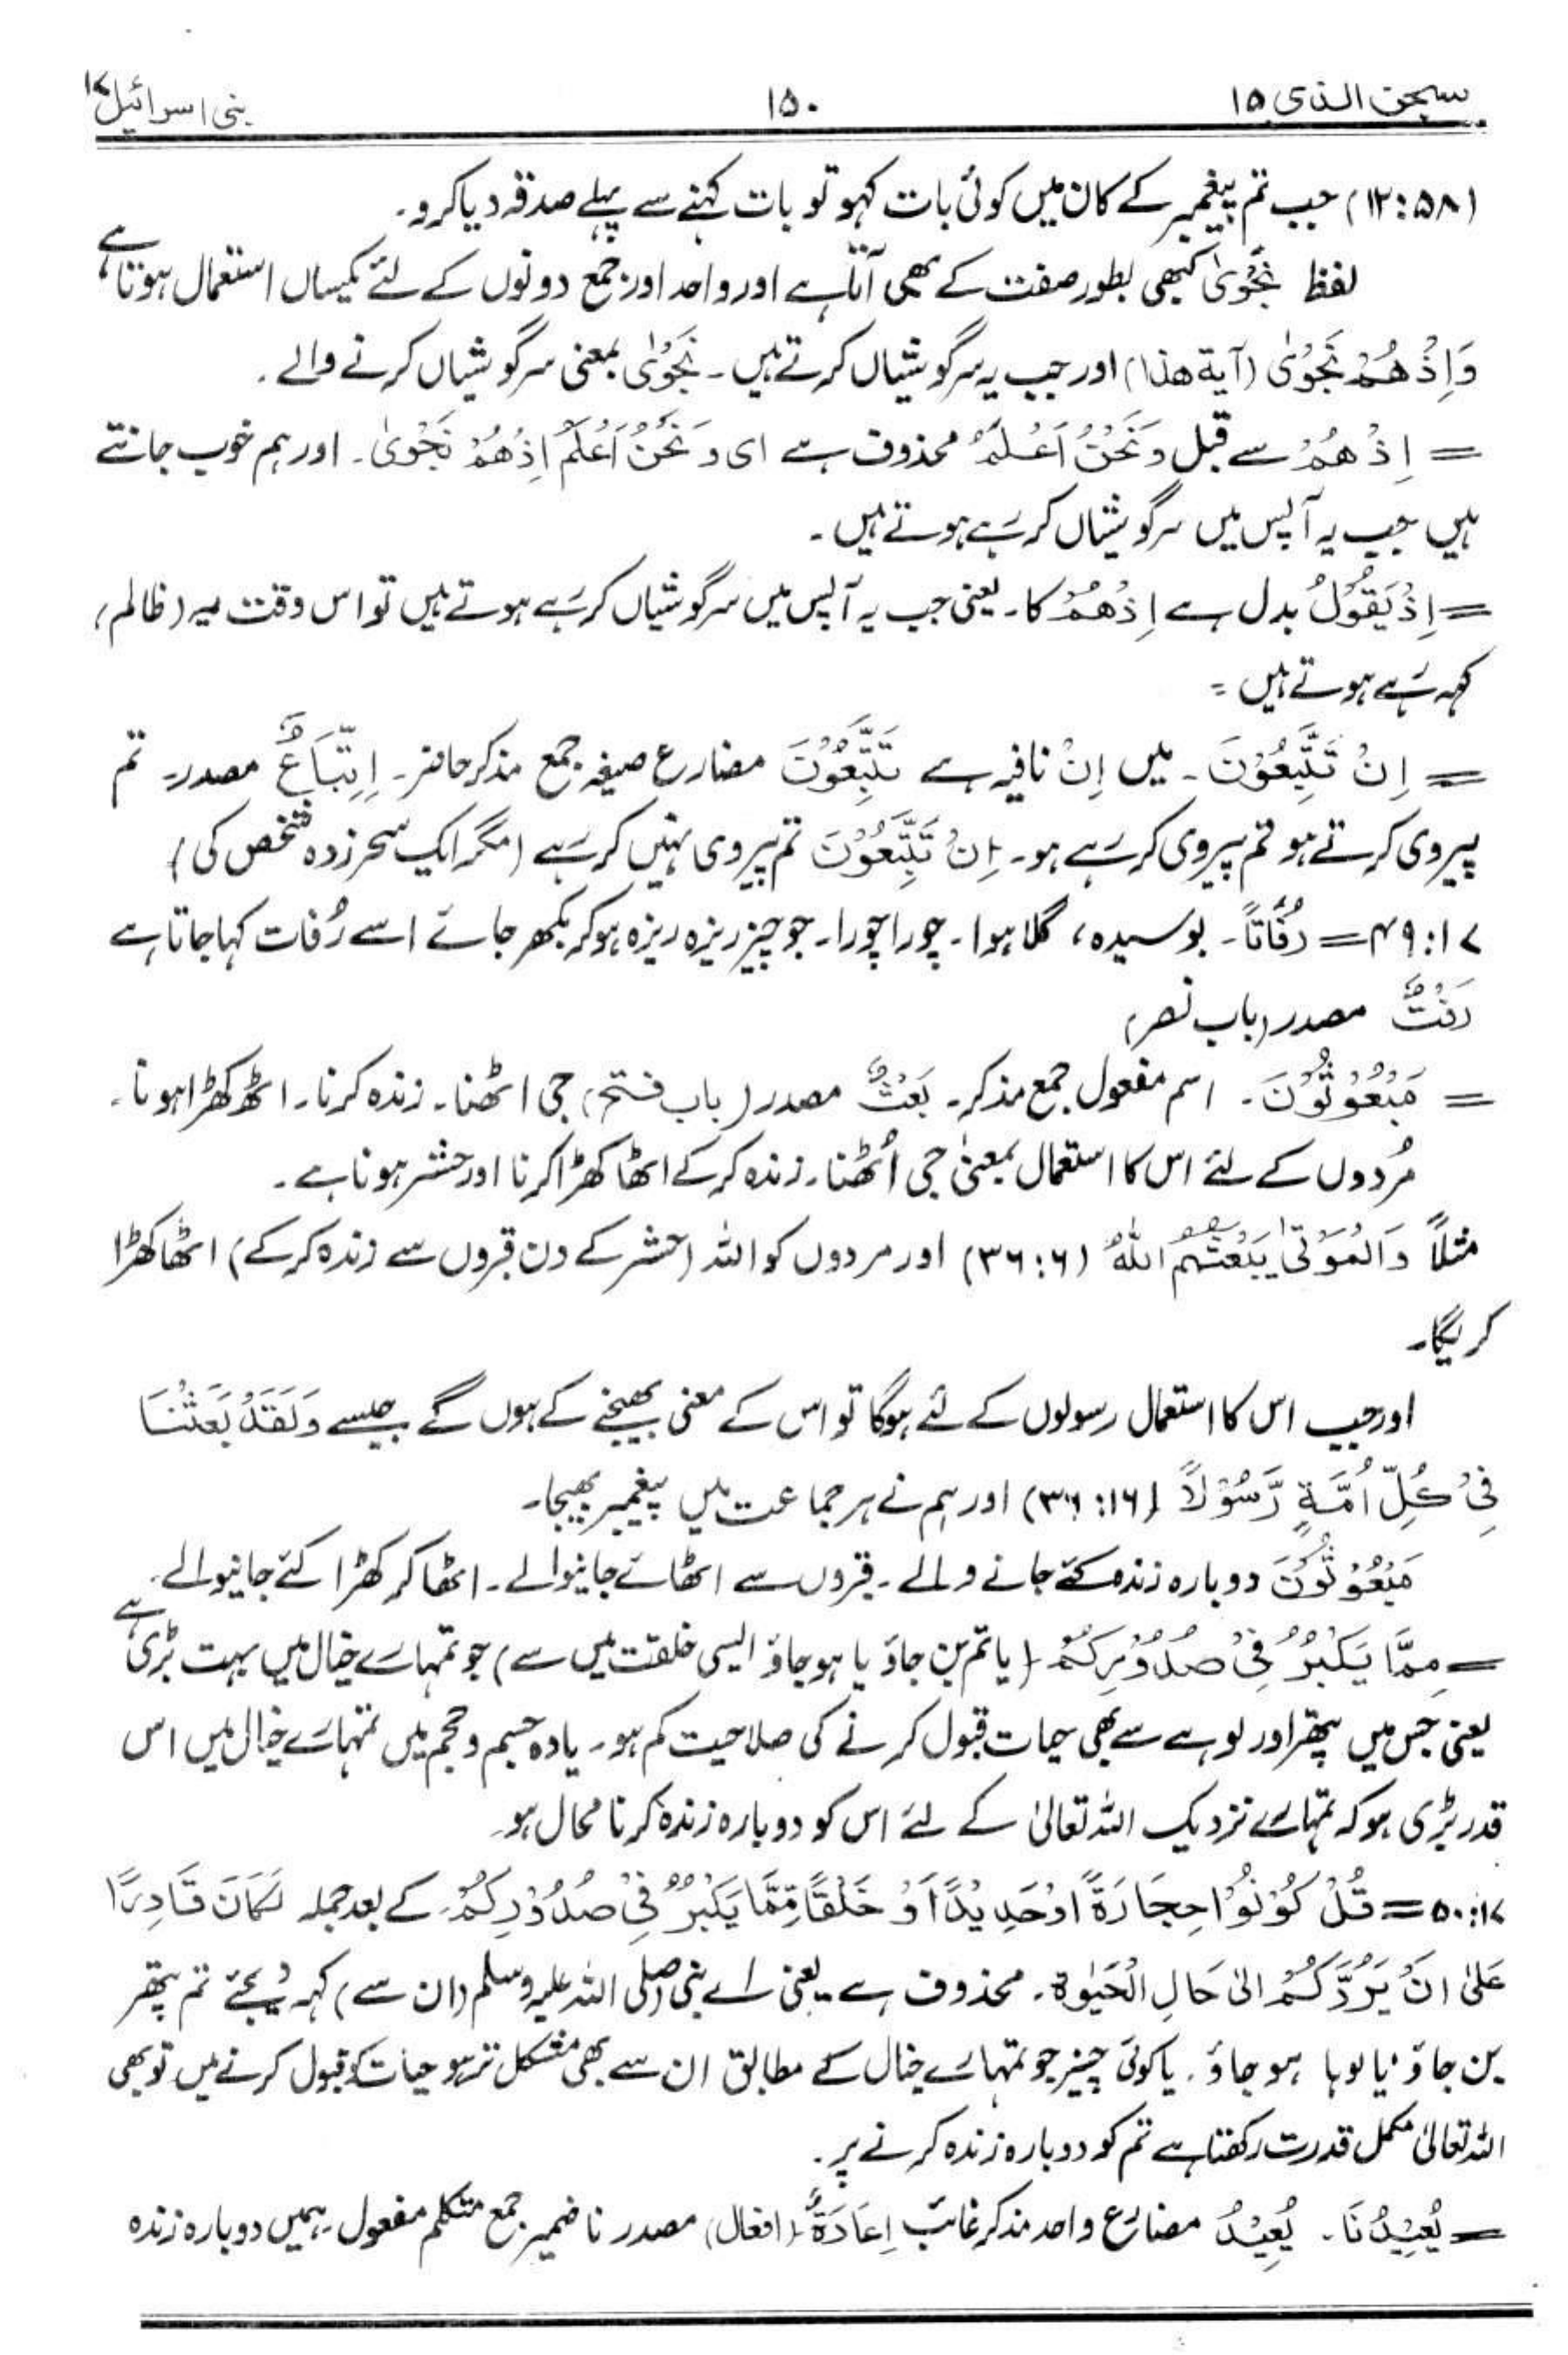 سبحٰن الذی ۱۵ ۱۵۰ بنی اسرائیل ۱۷
(۱۲:۵۸) جب تم پیغمبر کے کان میں کوئی بات کہو تو بات کہنے سے پہلے صدقہ دیا کرو۔
لفظ نَجْوٰی کبھی بطور صفت کے بھی آتا ہے اور واحد اور جمع دونوں کے لئے یکساں استعمال ہوتا ہے
وَاِذْ هُمْ نَجْوٰی (آیۃ ھذا) اور جب یہ سرگوشیاں کرتے ہیں۔ نَجْوٰی بمعنی سرگوشیاں کرنے والے۔
= اِذْ هُمْ سے قبل وَنَحْنُ اَعْلَمُ محذوف ہے ای وَ نَحْنُ اَعْلَمُ اِذْهُمْ نَجْوٰی۔ اور ہم خوب جانتے
ہیں جب یہ آپس میں سرگوشیاں کر رہے ہوتے ہیں۔
= اِذْ یَقُوْلُ بدل ہے اِذْهُمْ کا۔ یعنی جب یہ آپس میں سرگوشیاں کر رہے ہوتے ہیں تو اس وقت یہ (ظالم)
کہہ رہے ہوتے ہیں =
= اِنْ تَتَّبِعُوْنَ۔ میں اِنْ نافیہ ہے تَتَّبِعُوْنَ مضارع صیغہ جمع مذکر حاضر۔ اِتِّبَاعٌ مصدر۔ تم
پیروی کرتے ہو تم پیروی کر رہے ہو۔ اِنْ تَتَّبِعُوْنَ تم پیروی نہیں کر رہے (مگر ایک سحر زدہ شخص کی)
۴۹:۱۷ = رُفَاتًا۔ بوسیدہ، گلا ہوا۔ چورا چورا۔ جو چیز ریزہ ریزہ ہو کر بکھر جائے اسے رُفات کہا جاتا ہے
رَفْتٌ مصدر (باب نصر)
= مَبْعُوْثُوْنَ۔ اسم مفعول جمع مذکر۔ بَعْثٌ مصدر (باب فتح) جی اٹھنا۔ زندہ کرنا۔ اٹھ کھڑا ہونا۔
مُردوں کے لئے اس کا استعمال بمعنیٰ جی اُٹھنا۔ زندہ کرکے اٹھا کھڑا کرنا اور حشر ہونا ہے۔
مثلاً وَالْمَوْتٰی یَبْعَثُهُمُ اللّٰهُ (۳۶:۶) اور مردوں کو اللہ (حشر کے دن قبروں سے زندہ کرکے) اٹھا کھڑا
کریگا۔
اور جب اس کا استعمال رسولوں کے لئے ہوگا تو اس کے معنی بھیجنے کے ہوں گے جیسے وَلَقَدْ بَعَثْنَا
فِیْ كُلِّ اُمَّةٍ رَّسُوْلًا (۳۶:۱۶) اور ہم نے ہر جماعت میں پیغمبر بھیجا۔
مَبْعُوْثُوْنَ دوبارہ زندہ کئے جانے والے۔ قبروں سے اٹھائے جانیوالے۔ اٹھا کر کھڑا کئے جانیوالے۔
= مِمَّا یَکْبُرُ فِیْ صُدُوْرِکُمْ (یا تم بن جاؤ یا ہو جاؤ ایسی خلقت میں سے) جو تمہارے خیال میں بہت بڑی ہے
یعنی جس میں پتھر اور لوہے سے بھی حیات قبول کرنے کی صلاحیت کم ہو۔ یا وہ جسم و حجم میں تمہارے خیال میں اس
قدر بڑی ہو کہ تمہارے نزدیک اللہ تعالیٰ کے لئے اس کو دوبارہ زندہ کرنا محال ہو۔
۵۰:۱۷ = قُلْ كُوْنُوْا حِجَارَةً اَوْ حَدِیْدًا اَوْ خَلْقًا مِّمَّا یَکْبُرُ فِیْ صُدُوْرِكُمْ۔ کے بعد جملہ لَکَانَ قَادِرًا
عَلیٰ اَنْ یَرُدَّكُمْ الیٰ حَالِ الْحَیٰوۃِ۔ محذوف ہے یعنی اے نبی (صلی اللہ علیہ وسلم) (ان سے) کہہ دیجئے تم پتھر
بن جاؤ یا لوہا ہو جاؤ۔ یا کوئی چیز جو تمہارے خیال کے مطابق ان سے بھی مشکل تر ہو حیات کو قبول کرنے میں تو بھی
اللہ تعالیٰ مکمل قدرت رکھتا ہے تم کو دوبارہ زندہ کرنے پر۔
= یُعِیْدُنَا۔ یُعِیْدُ مضارع واحد مذکر غائب اِعَادَةٌ (افعال) مصدر نا ضمیر جمع متکلم مفعول۔ ہمیں دوبارہ زندہ